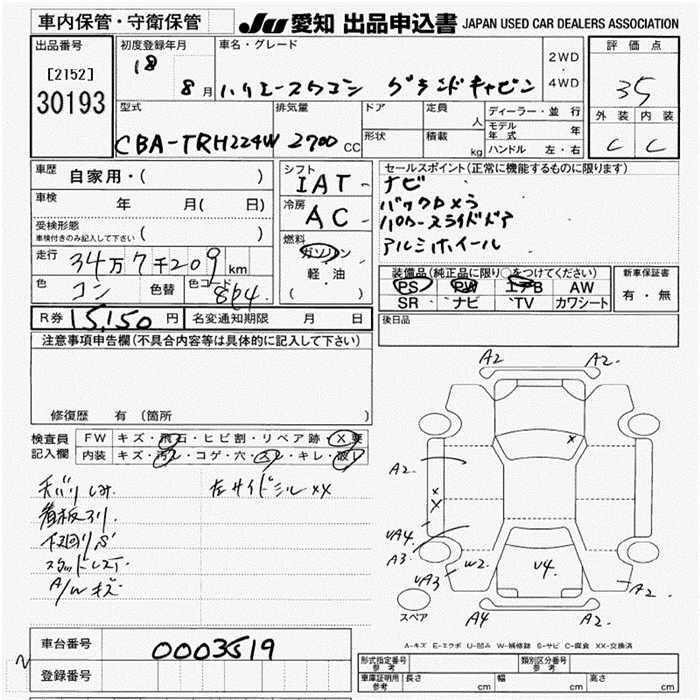 車内保管・守衛保管
JU 愛知 出品申込書 JAPAN USED CAR DEALERS ASSOCIATION
出品番号
[2152]
30193
初度登録年月
18
8月
車名・グレード
ハイエースワゴン グランドキャビン
2WD
・
4WD
評価点
35
外装 内装
C C
型式
CBA-TRH224W
排気量
2700 CC
ドア
形状
定員
人
積載
kg
ディーラー・並行
モデル年式 年
ハンドル 左・右
車歴
自家用・( )
車検
年 月( 日)
受検形態
車検付きのみ記入して下さい ( )
走行
34万7千209 km
色
コン
色替
色コード
8P4
シフト
IAT
冷房
AC
燃料
ガソリン
・
軽・油
( )
セールスポイント(正常に機能するものに限ります)
ナビ
バックカメラ
パワースライドドア
アルミホイール
装備品(純正品に限り○をつけてください)
PS PW エアB AW
SR ナビ TV カワシート
新車保証書
有・無
R券 15,150 円
名変通知期限 月 日
後日品
注意事項申告欄(不具合内容等は具体的に記入して下さい)
修復歴 有 (箇所 )
検査員
記入欄
FW キズ・飛石・ヒビ割・リペア跡・X要
内装 キズ・汚レ・コゲ・穴・スレ・キレ・破レ
天バリしみ
左サイドシル XX
看板スリ
下回りS
スタッドレス
A/Wキズ
A2 A2.
X
A2.
X
X
UA4.
A3
UA3
W2
U4.
A2
A4 A2.
スペア
A-キズ E-エクボ U-凹み W-補修跡 S-サビ C-腐食 XX-交換済
車台番号
0003519
登録番号
形式指定番号
参考
類別区分番号
参考
車庫証明用
参考
長さ cm
幅 cm
高さ cm